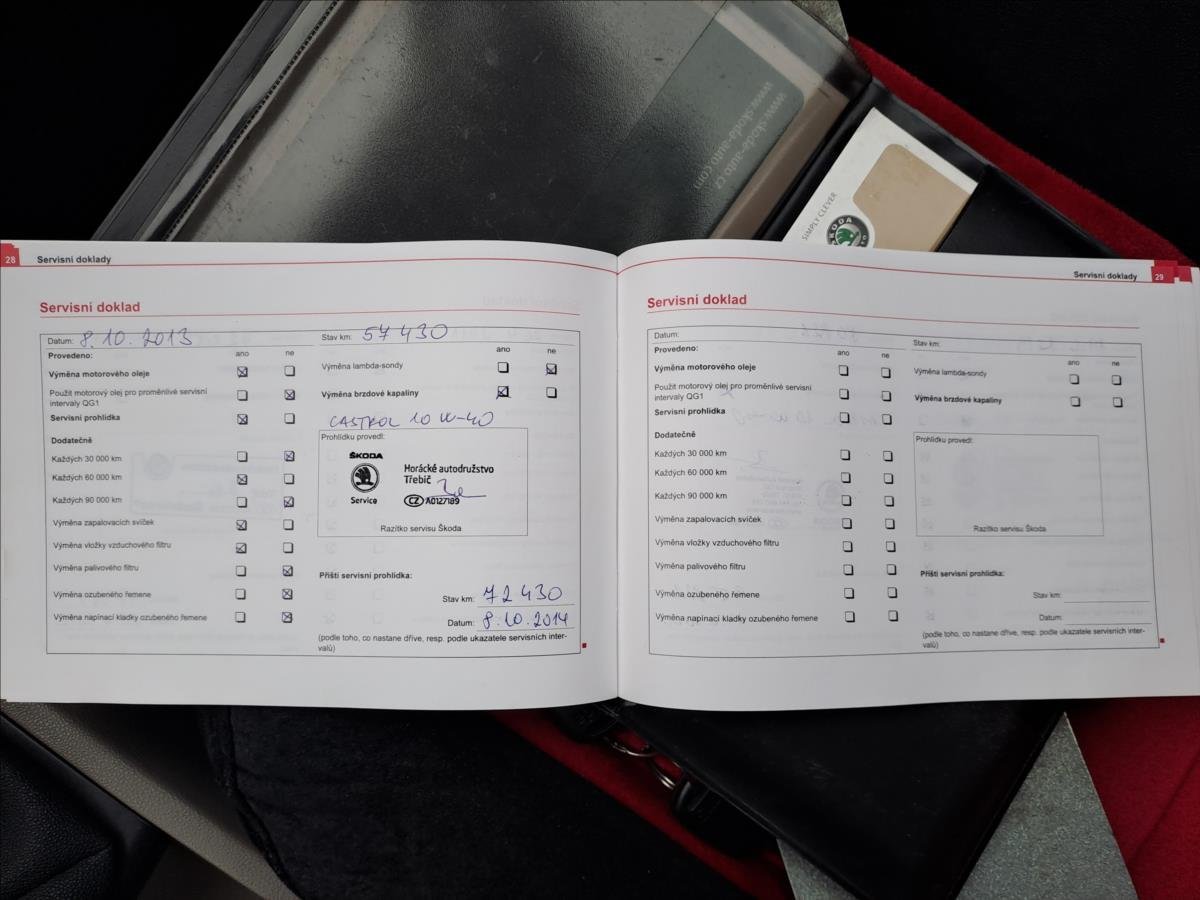 www.skoda-auto.cz
www.skoda-auto.com
SIMPLY CLEVER
SKODA
28 Servisní doklady
Servisní doklad
Datum: 8.10.2013 Stav km: 57 430
Provedeno: ano ne
ano ne
Výměna motorového oleje
Výměna lambda-sondy
Použit motorový olej pro proměnlivé servisní
intervaly QG1
Výměna brzdové kapaliny
Servisní prohlídka
CASTROL 10W-40
Dodatečně
Prohlídku provedl:
Každých 30 000 km
Každých 60 000 km
Každých 90 000 km
ŠKODA
Service
Horácké autodružstvo
Třebíč
CZ A0127189
Razítko servisu Škoda
Výměna zapalovacích svíček
Výměna vložky vzduchového filtru
Výměna palivového filtru
Výměna ozubeného řemene
Výměna napínací kladky ozubeného řemene
Příští servisní prohlídka:
Stav km: 72 430
Datum: 8.10.2014
(podle toho, co nastane dříve, resp. podle ukazatele servisních inter-
valů)
Servisní doklady 29
Servisní doklad
Datum:
Stav km:
Provedeno: ano ne
ano ne
Výměna motorového oleje
Výměna lambda-sondy
Použit motorový olej pro proměnlivé servisní
intervaly QG1
Výměna brzdové kapaliny
Servisní prohlídka
Dodatečně
Prohlídku provedl:
Každých 30 000 km
Každých 60 000 km
Každých 90 000 km
Výměna zapalovacích svíček
Razítko servisu Škoda
Výměna vložky vzduchového filtru
Výměna palivového filtru
Výměna ozubeného řemene
Výměna napínací kladky ozubeného řemene
Příští servisní prohlídka:
Stav km:
Datum:
(podle toho, co nastane dříve, resp. podle ukazatele servisních inter-
valů)